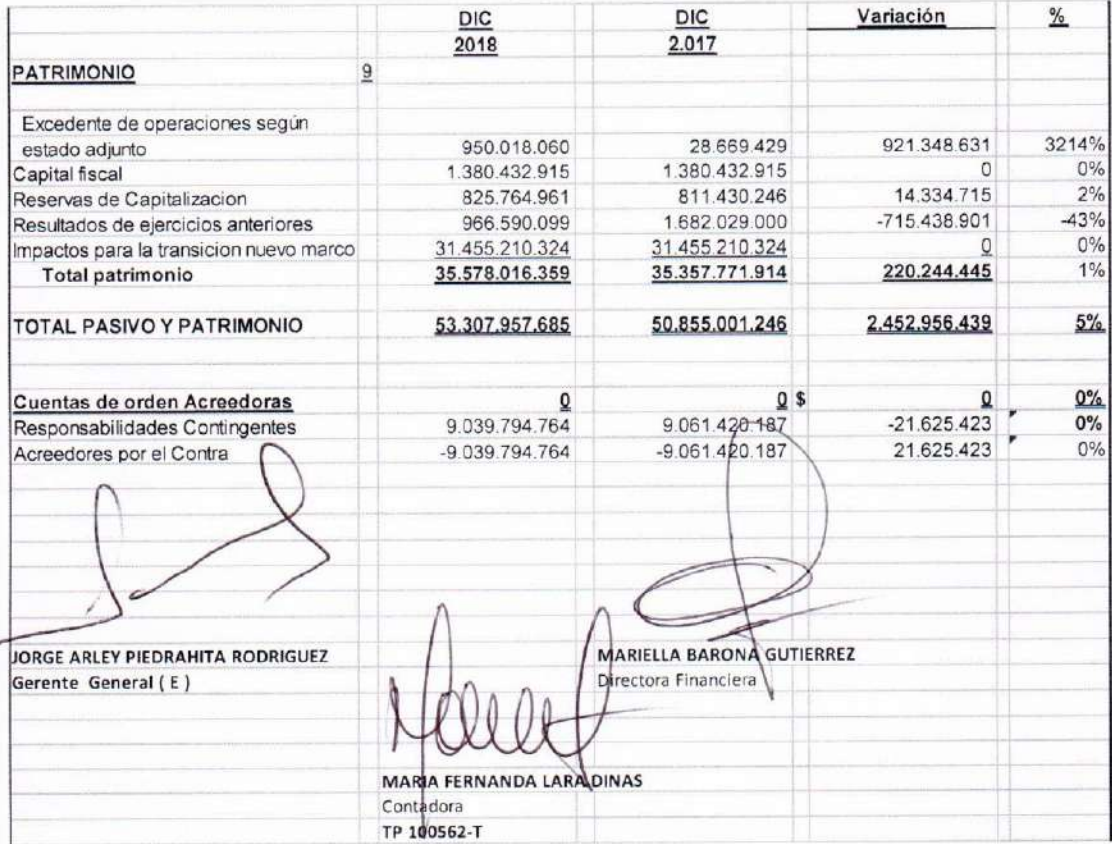 DIC DIC Variación %
2018 2.017
PATRIMONIO 9
Excedente de operaciones según
estado adjunto 950.018.060 28.669.429 921.348.631 3214%
Capital fiscal 1.380.432.915 1.380.432.915 0 0%
Reservas de Capitalizacion 825.764.961 811.430.246 14.334.715 2%
Resultados de ejercicios anteriores 966.590.099 1.682.029.000 -715.438.901 -43%
Impactos para la transicion nuevo marco 31.455.210.324 31.455.210.324 0 0%
Total patrimonio 35.578.016.359 35.357.771.914 220.244.445 1%
TOTAL PASIVO Y PATRIMONIO 53.307.957.685 50.855.001.246 2.452.956.439 5%
Cuentas de orden Acreedoras 0 0 $ 0 0%
Responsabilidades Contingentes 9.039.794.764 9.061.420.187 -21.625.423 0%
Acreedores por el Contra -9.039.794.764 -9.061.420.187 21.625.423 0%
JORGE ARLEY PIEDRAHITA RODRIGUEZ MARIELLA BARONA GUTIERREZ
Gerente General ( E ) Directora Financiera
MARIA FERNANDA LARA DINAS
Contadora
TP 100562-T